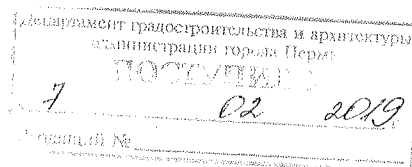 Департамент градостроительства и архитектуры
администрации города Перми
ПОСТУПИЛО
7 02 2019
Входящий №